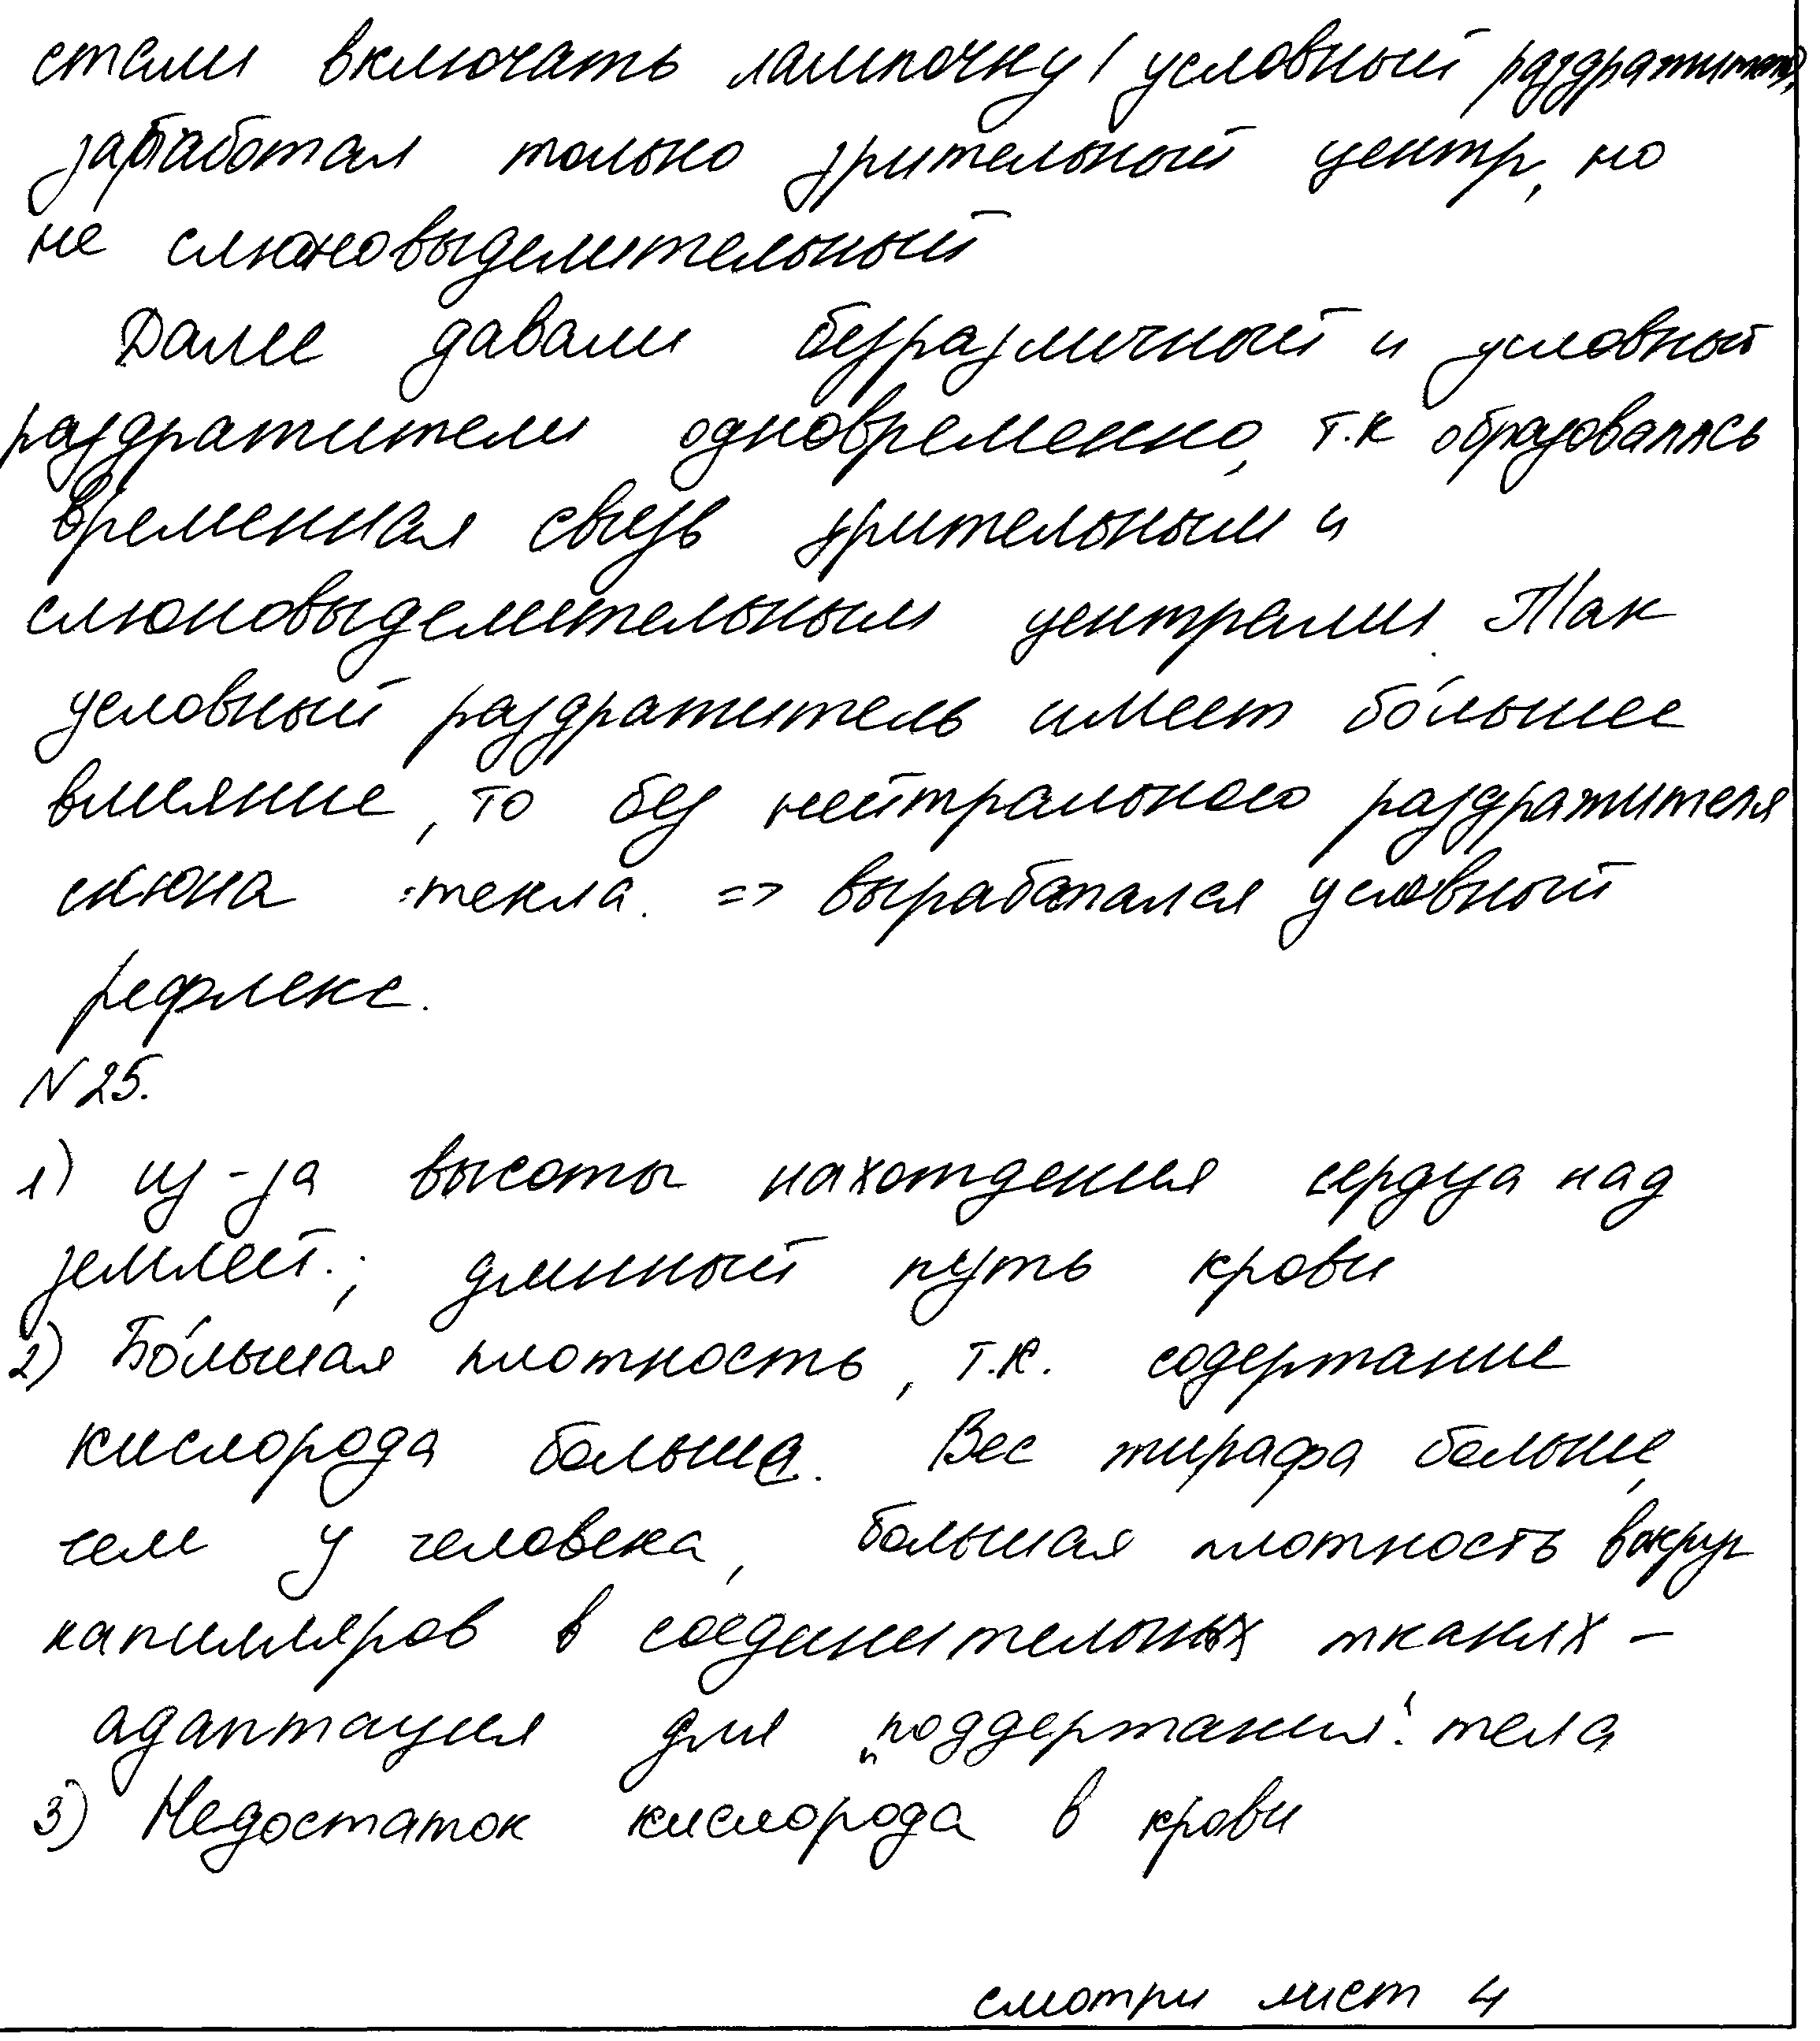 стали включать лампочку (условный раздражитель)
заработал только зрительный центр, но
не слюновыделительный
Далее давали безразличный и условный
раздражители одновременно, т.к образовалась
временная связь зрительным и
слюновыделительным центрами. Так
условный раздражитель имеет бо́льшее
влияние, то без нейтрального раздражителя
слюна текла. => выработался условный
рефлекс.
N25.
1) из-за высоты нахождения сердца над
землей.; длинный путь крови
2) Бо́льшая плотность, т.к. содержание
кислорода больше. Вес жирафа больше,
чем у человека, большая плотность вокруг
капилляров в соединительных тканях -
адаптация для "поддержания" тела
3) Недостаток кислорода в крови
смотри лист 4